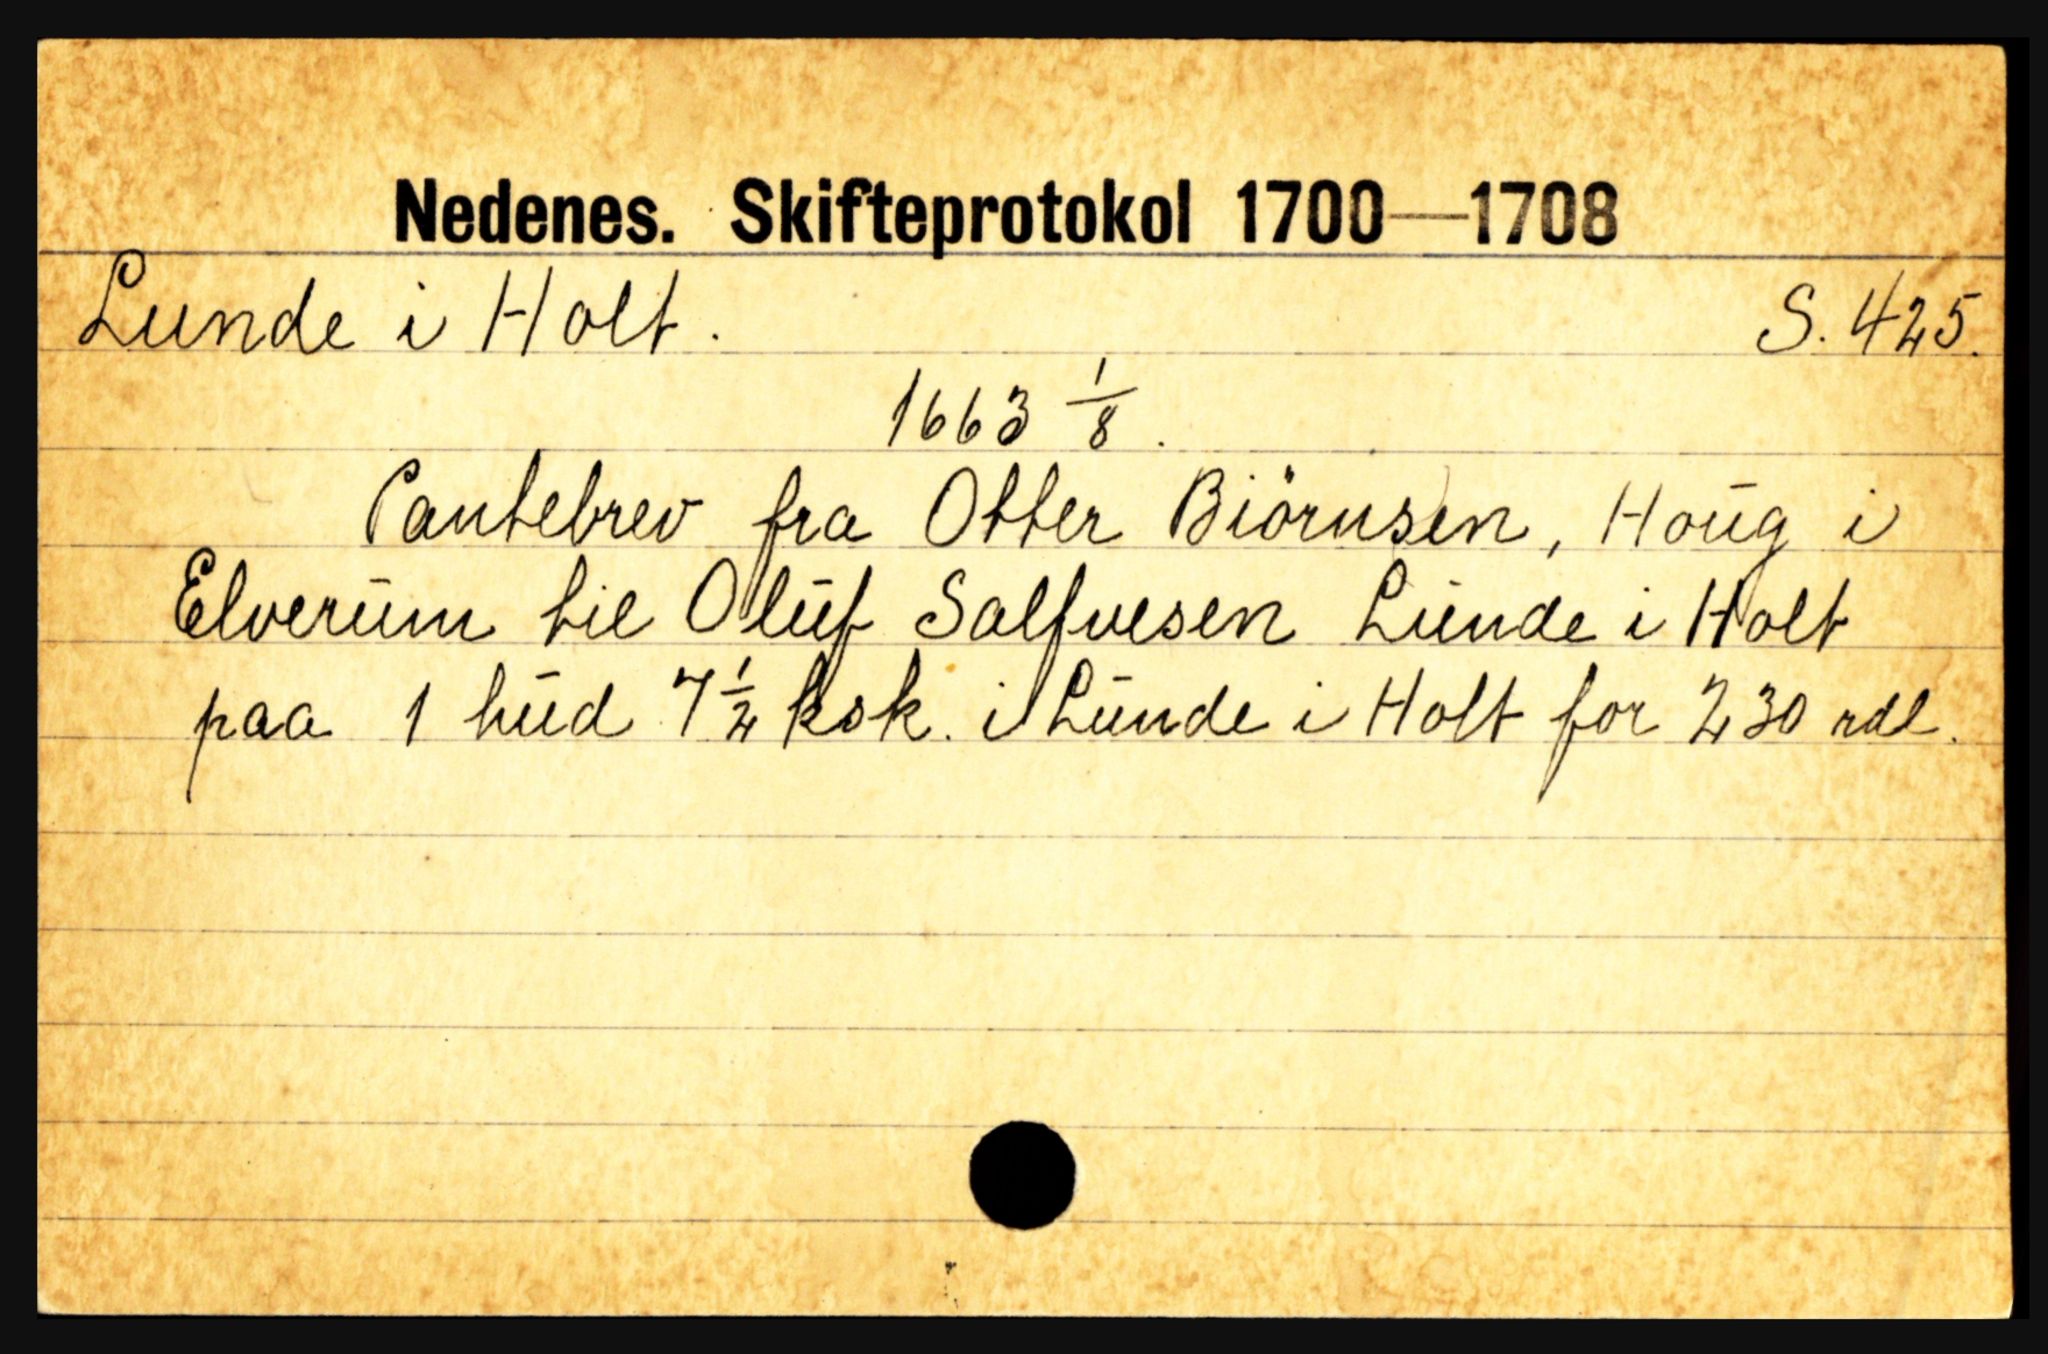 Nedenes. Skifteprotokol 1700—1708
Lunde i Holt. S. 425.
1663 1/8.
Pantebrev fra Otter Biörnsen, Houg i
Elverum til Oluf Salfvesen Lunde i Holt
paa 1 hud 7 1/2 ksk. i Lunde i Holt for 230 rdl.